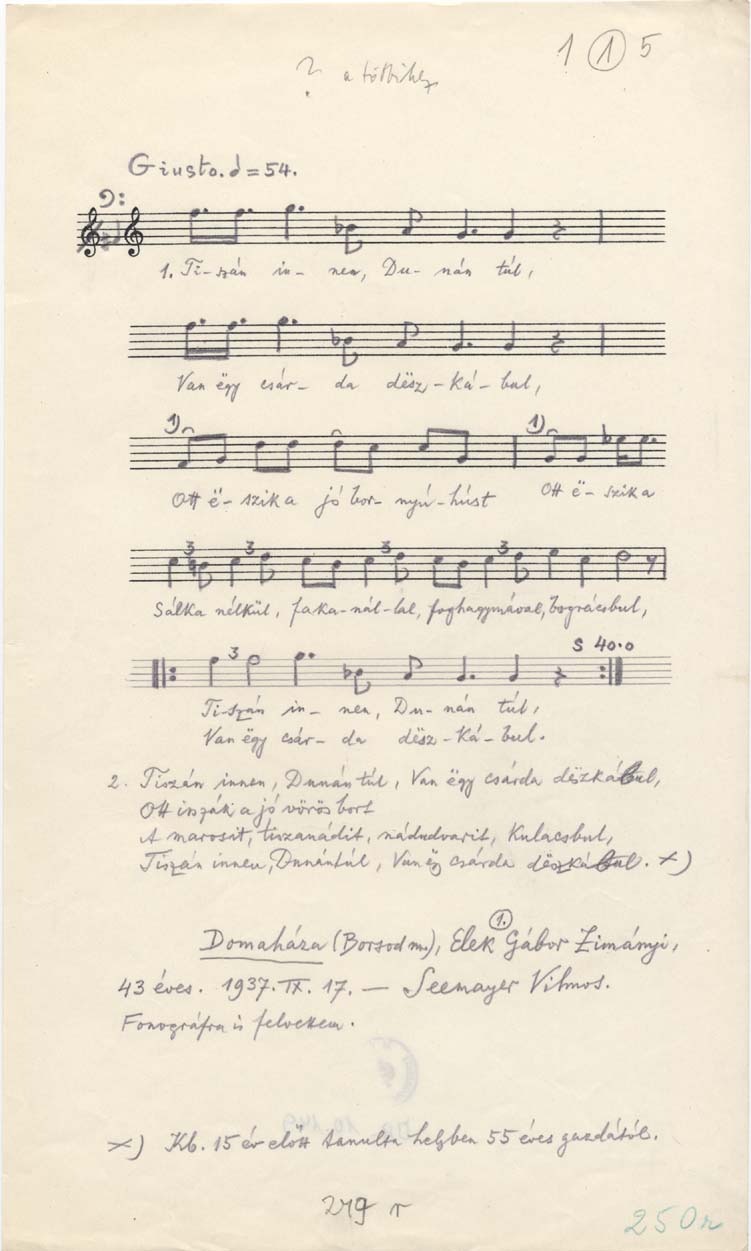 1 1 5
? a többihez
Giusto. = 54.
1. Ti-szán in- nen, Du- nán túl,
Van ëgy csár- da dësz-ká-bul,
1) 1)
Ott ë- szik a jó bor- nyú-húst Ott ë- szik a
3 3 3 3
Sálka nélkül, faka-nál-lal, foghagymával, bográcsbul,
3 S 40.0
Ti-szán in- nen, Du- nán túl,
Van ëgy csár- da dësz-ká-bul.
2. Tiszán innen, Dunán túl, Van ëgy csárda dëszkábul,
Ott isszák a jó vörös bort
A marosit, tiszanádit, nádudvarit, kulacsbul,
Tiszán innen, Dunántúl, Van ëgy csárda dëszkábul. x)
1.
Domaháza (Borsod m.), Elek Gábor Zimányi,
43 éves. 1937. IX. 17. — Seemayer Vilmos.
Fonográfra is felvettem.
x) Kb. 15 év előtt tanulta helyben 55 éves gazdától.
249 r
250r